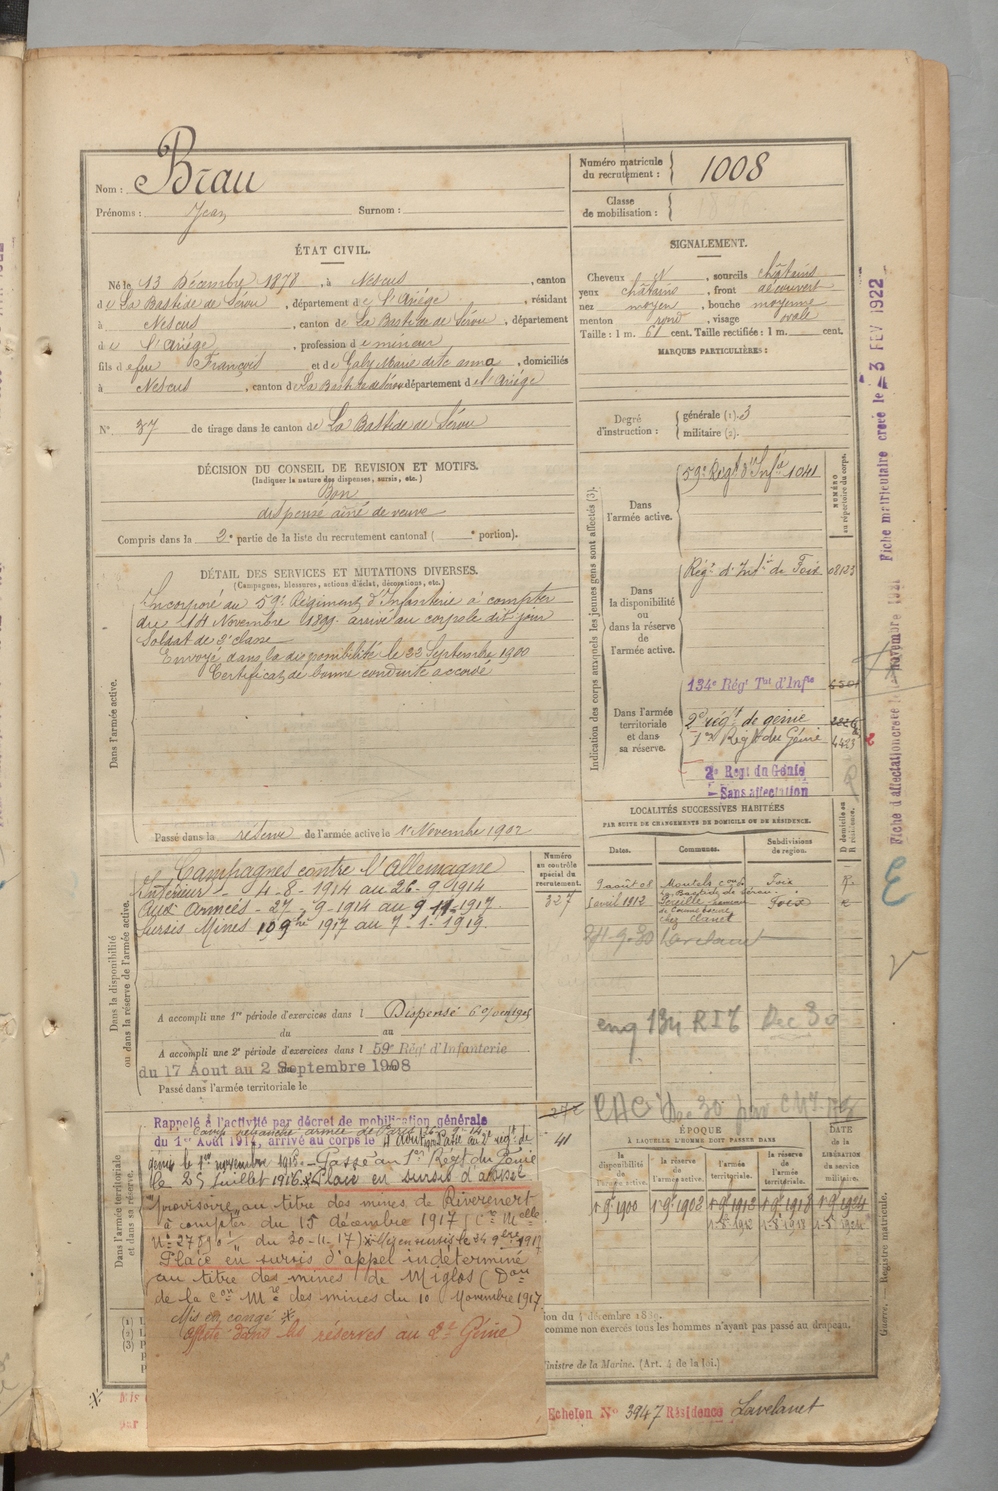 Nom : Brau
Prénoms : Jean Surnom :
Numéro matricule du recrutement : 1008
Classe de mobilisation :
ÉTAT CIVIL.
Né le 13 Décembre 1878, à Nescus, canton
de La Bastide de Sérou, département de l'Ariège, résidant
à Nescus, canton de La Bastide de Sérou, département
de l'Ariège, profession de mineur
fils de feu François et de Galy Marie dite anna, domiciliés
à Nescus, canton de La Bastide de Sérou département de l'Ariège
N° 37 de tirage dans le canton de La Bastide de Sérou
SIGNALEMENT.
Cheveux N, sourcils châtains
yeux châtains, front découvert
nez moyen, bouche moyenne
menton rond, visage ovale
Taille : 1 m. 61 cent. Taille rectifiée : 1 m. cent.
MARQUES PARTICULIÈRES :
Degré d'instruction : générale (1). 3
militaire (2).
DÉCISION DU CONSEIL DE REVISION ET MOTIFS.
(Indiquer la nature des dispenses, sursis, etc.)
Bon
dispensé aîné de veuve
Compris dans la 2e partie de la liste du recrutement cantonal ( e portion).
DÉTAIL DES SERVICES ET MUTATIONS DIVERSES.
(Campagnes, blessures, actions d'éclat, décorations, etc.)
Dans l'armée active.
Incorporé au 59e Régiment d'Infanterie à compter
du 14 Novembre 1899. arrivé au corps le dit jour
Soldat de 2e classe
Envoyé dans la disponibilité le 22 Septembre 1900
Certificat de bonne conduite accordé
Passé dans la réserve de l'armée active le 1er Novembre 1902
Indication des corps auxquels les jeunes gens sont affectés (3).
NUMÉRO au répertoire du corps.
Dans l'armée active. 59e Régt d'Infie 1041
Dans la disponibilité ou dans la réserve de l'armée active. Régt d'Infie de Foix 08123
Dans l'armée territoriale et dans sa réserve.
134e Régt Tal d'Infie
2e régt de génie
1er Régt du Génie 4423
2e Regt du Génie
Sans affectation
LOCALITÉS SUCCESSIVES HABITÉES
PAR SUITE DE CHANGEMENTS DE DOMICILE OU DE RÉSIDENCE.
Dates. Communes. Subdivisions de région. D domicile ou R résidence.
9 août 08 Montels con de La Bastide de Sérou Foix R
5 avril 1912 Foix
chez Clanet
24-9-30 Lavelanet
enq 134 RIT Dec 30
Dans la disponibilité ou dans la réserve de l'armée active.
Numéro au contrôle spécial du recrutement.
327
Campagnes contre l'Allemagne
Intérieur - 4-8-1914 au 26-9-1914
Aux Armées - 27-9-1914 au 9 11 1917
Sursis Mines 10 9bre 1917 au 7-1-1919.
A accompli une 1re période d'exercices dans l Dispensé
du au
A accompli une 2e période d'exercices dans l 59e Régt d'Infanterie
du 17 Aout au 2 Septembre 1908
Passé dans l'armée territoriale le
Dans l'armée territoriale et dans sa réserve.
Rappelé à l'activité par décret de mobilisation générale
du 1er Août 1914, arrivé au corps le 4 août 1914 Passé au 2e régt de
génie le 1er novembre 1915. Passé au 1er Régt du Génie
le 25 juillet 1916 Placé en sursis d'appel
Provisoire au titre des mines de Riverenert
à compter du 15 décembre 1917 (
du 30-11-17) Mis en sursis le
Placé en sursis d'appel indéterminé
au titre des mines de Miglos (Don
de la con Mre des mines du 10 Novembre 1917
Mis en congé
affecté dans les réserves au 2e Génie
41
ÉPOQUE
À LAQUELLE L'HOMME DOIT PASSER DANS
DATE de la LIBÉRATION du service militaire.
la disponibilité de l'armée active. la réserve de l'armée active. l'armée territoriale. la réserve de l'armée territoriale.
1-9-1900 1-9-1902 1-9-1912 1-9-1918 1-9-1924
1-8-1912 1-8-1918 1-8-1924
tion du 1er décembre 1899.
comme non exercés tous les hommes n'ayant pas passé au drapeau.
Ministre de la Marine. (Art. 4 de la loi.)
Echelon N° 3947 Résidence Lavelanet
Registre matricule.
Guerre.
Fiche d'affectation créée le novembre 1921 Fiche matriculaire créée le 3 FEV 1922